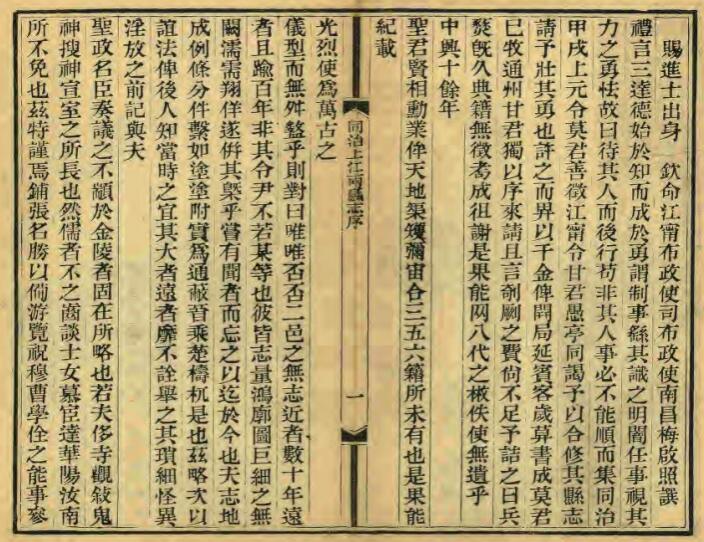 賜進士出身 欽命江甯布政使司布政使南昌梅啟照譔
禮言三達德始於知而成於勇謂制事繇其識之明闇任事視其
力之勇怯故曰待其人而後行苟非其人事必不能順而集同治
甲戌上元令莫君善徵江甯令甘君愚亭同謁予以合修其縣志
請予壯其勇也許之而畀以千金俾開局延賓客歲算書成莫君
已牧通州甘君獨以序來請且言剞劂之費尙不足予詰之曰兵
燹旣久典籍無徵耇成徂謝是果能网八代之㪚佚使無遺乎
中興十餘年
聖君賢相勳業侔天地榘矱彌宙合三五六籍所未有也是果能
紀載
同治上江兩縣志序
一
光烈使爲萬古之
儀型而無舛盭乎則對曰唯唯否否二邑之無志近者數十年遠
者且踰百年非其令尹不若某等也彼皆志量鴻廓圖巨細之無
闕濡需翔佯遂併其㮣乎嘗有聞者而忘之以迄於今也夫志地
成例條分件繫如塗塗附實爲通蔽晉乘楚檮杌是也茲略次以
誼法俾後人知當時之宜其大者遠者靡不詮舉之其瑣細怪異
淫放之前記與夫
聖政名臣奏議之不顓於金陵者固在所略也若夫侈寺觀敍鬼
神搜神宣室之所長也然儒者不之齒談士女慕宦達華陽汝南
所不免也茲特謹焉鋪張名勝以侚游覽祝穆曹學佺之能事㕘